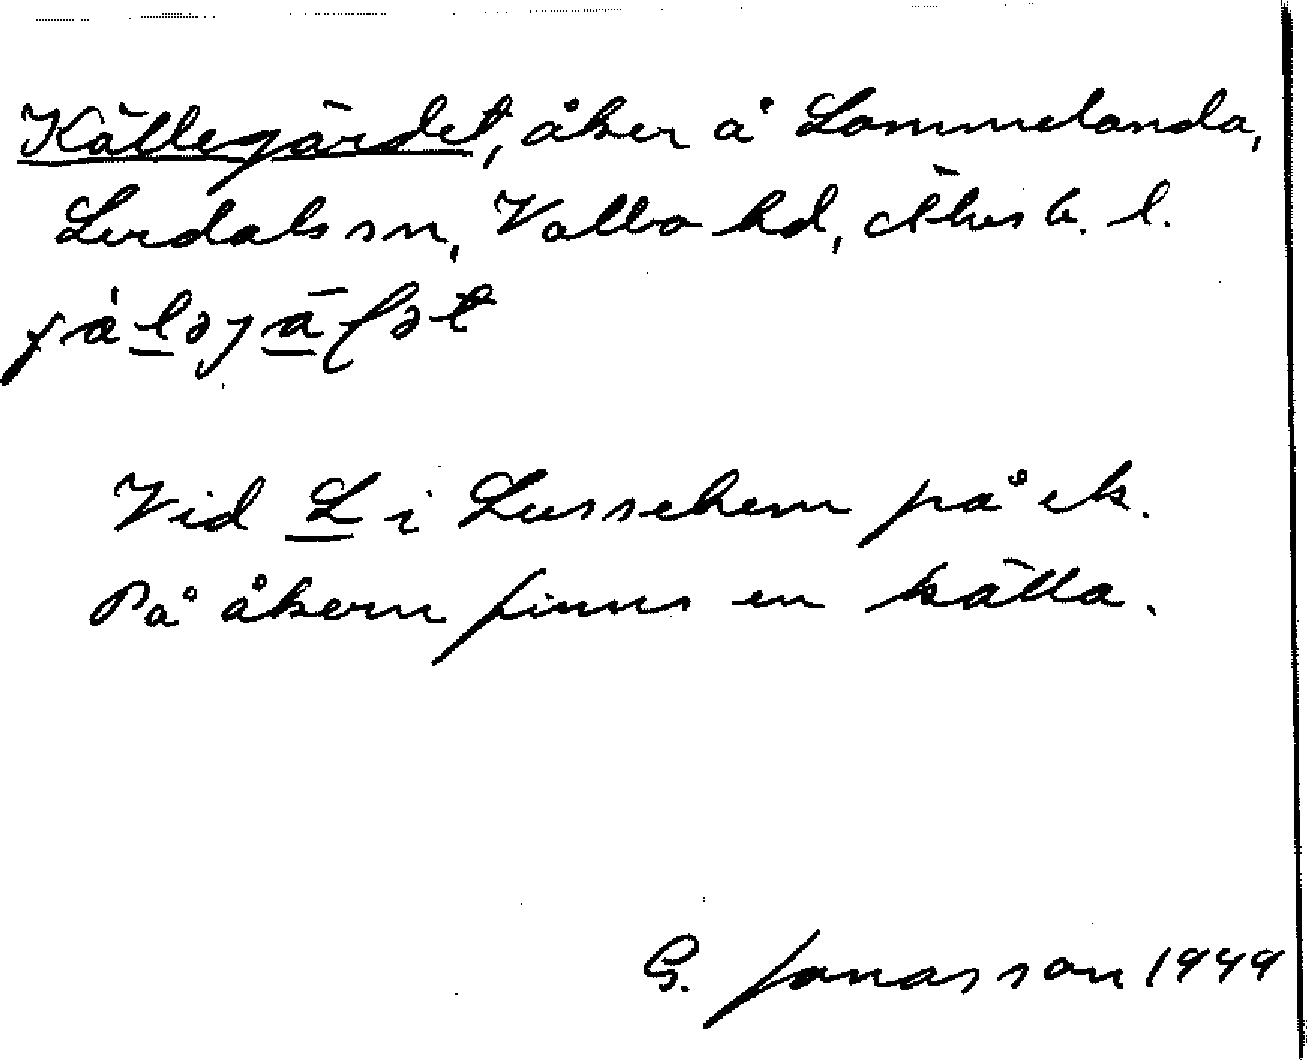 Källegärdet, åker å Lommelanda,
Lerdals sn, Valbo hd, Älvsb. l.
Vid L i Lussehem på ek.
På åkern finns en källa.
G. Jonasson 1949